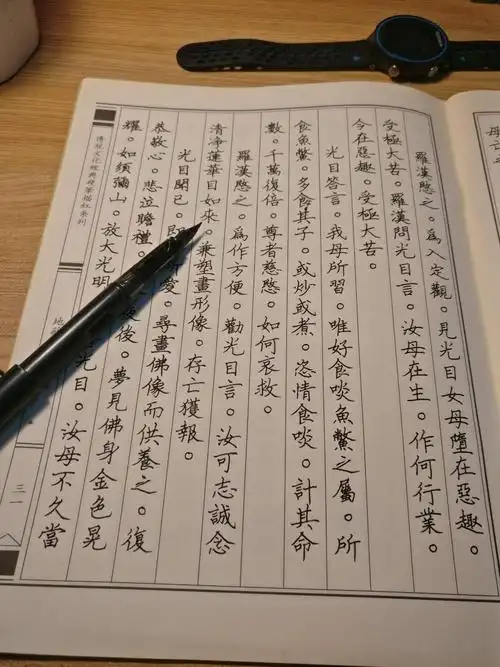 羅漢愍之。爲入定觀。見光目女母墮在惡趣。
受極大苦。羅漢問光目言。汝母在生。作何行業。
今在惡趣。受極大苦。
光目答言。我母所習。唯好食啖魚鱉之屬。所
食魚鱉。多食其子。或炒或煮。恣情食啖。計其命
數。千萬復倍。尊者慈愍。如何哀救。
羅漢愍之。爲作方便。勸光目言。汝可志誠念
清淨蓮華目如來。兼塑畫形像。存亡獲報。
光目聞已。即所愛。尋畫佛像而供養之。復
恭敬心。悲泣瞻禮。夜後。夢見佛身金色晃
耀。如須彌山。放大光明光目。汝母不久當
傳統文化經典硬筆描紅系列
地
三一